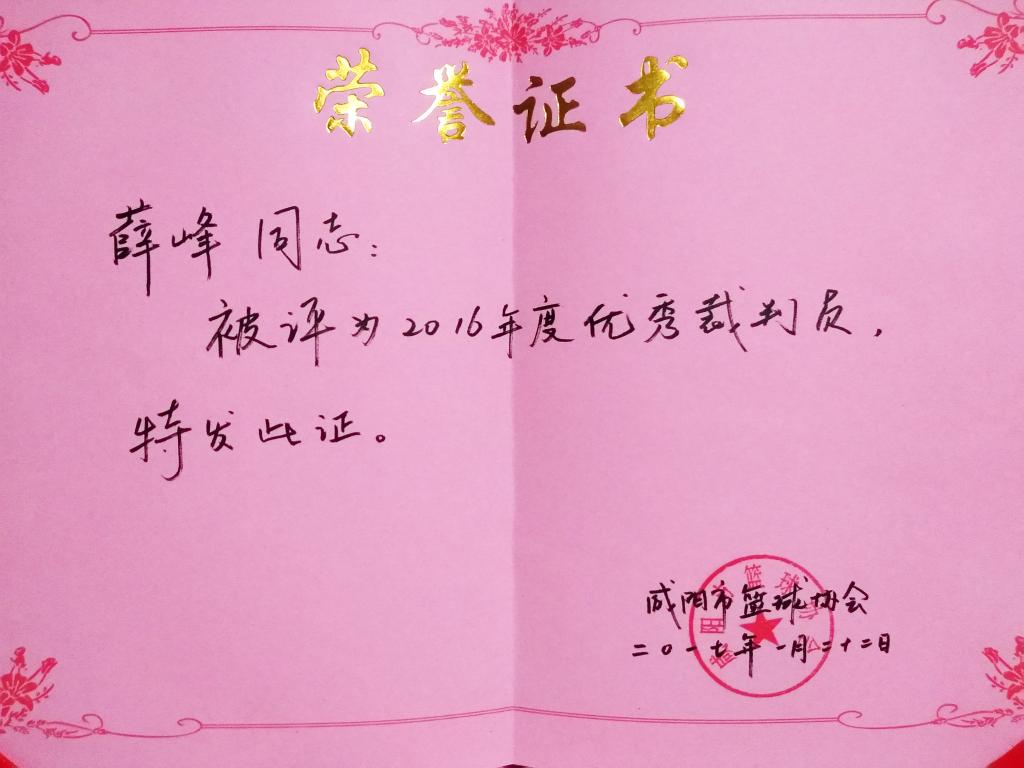 荣誉证书
薛峰同志:
被评为2016年度优秀裁判员,
特发此证。
咸阳市篮球协会
二0一七年一月二十二日